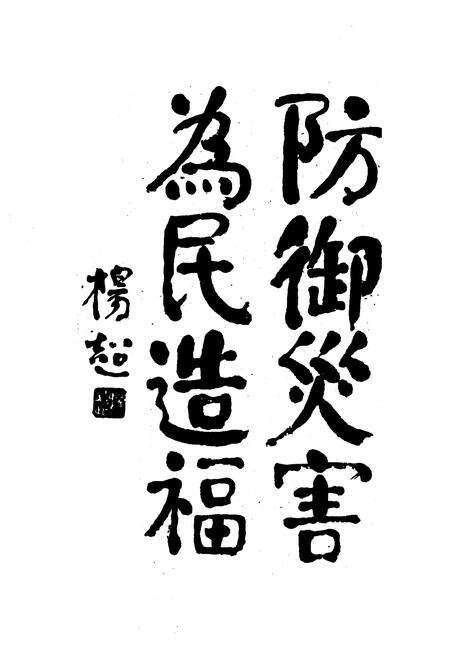 防御災害
為民造福
楊超